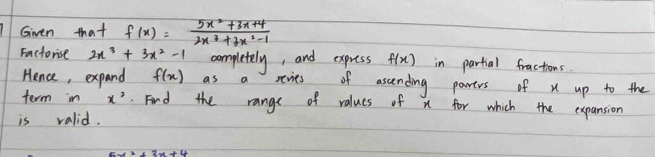 1 Given that f(x) = (5x² + 3x + 4)/(2x³ + 3x² - 1)
Factorise 2x³ + 3x² - 1 completely, and express f(x) in partial fractions.
Hence, expand f(x) as a series of ascending powers of x up to the
term in x². Find the range of values of x for which the expansion
is valid.
5x² + 3x + 4